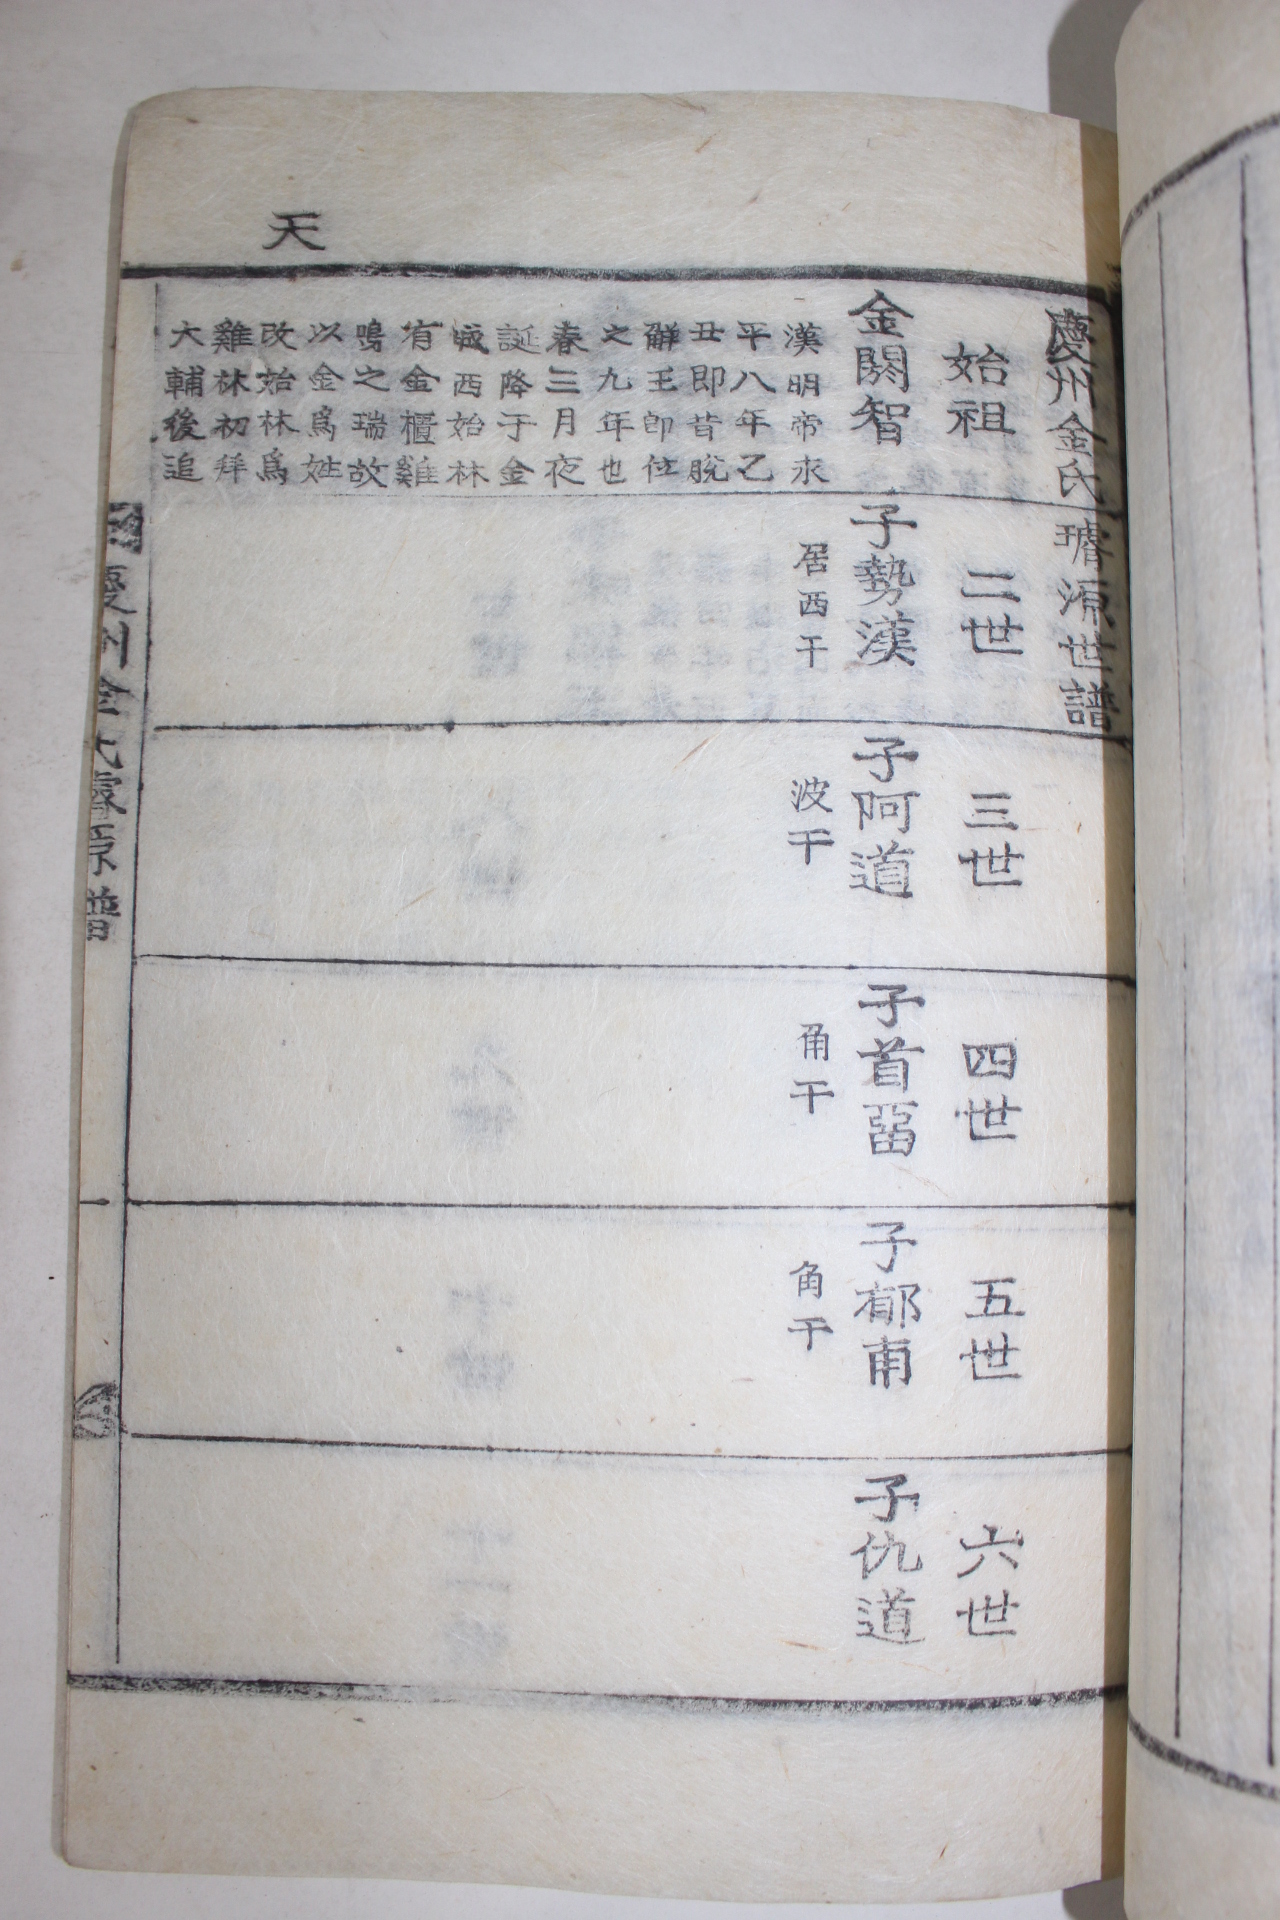 天
慶州金氏璿源世譜
始祖
金閼智
漢明帝永
平八年乙
丑卽昔脫
解王卽位
之九年也
春三月夜
誕降于金
城西始林
有金櫃雞
鳴之瑞故
以金爲姓
改始林爲
雞林初拜
大輔後追
二世
子勢漢
居西干
三世
子阿道
波干
四世
子首畱
角干
五世
子郁甫
角干
六世
子仇道
慶州金氏璿源譜
一